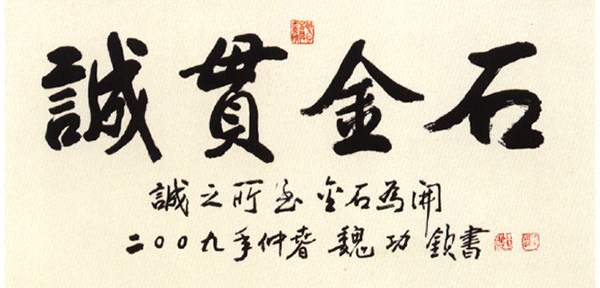 誠貫金石
誠之所至金石為開
二00九年仲春魏功欽書